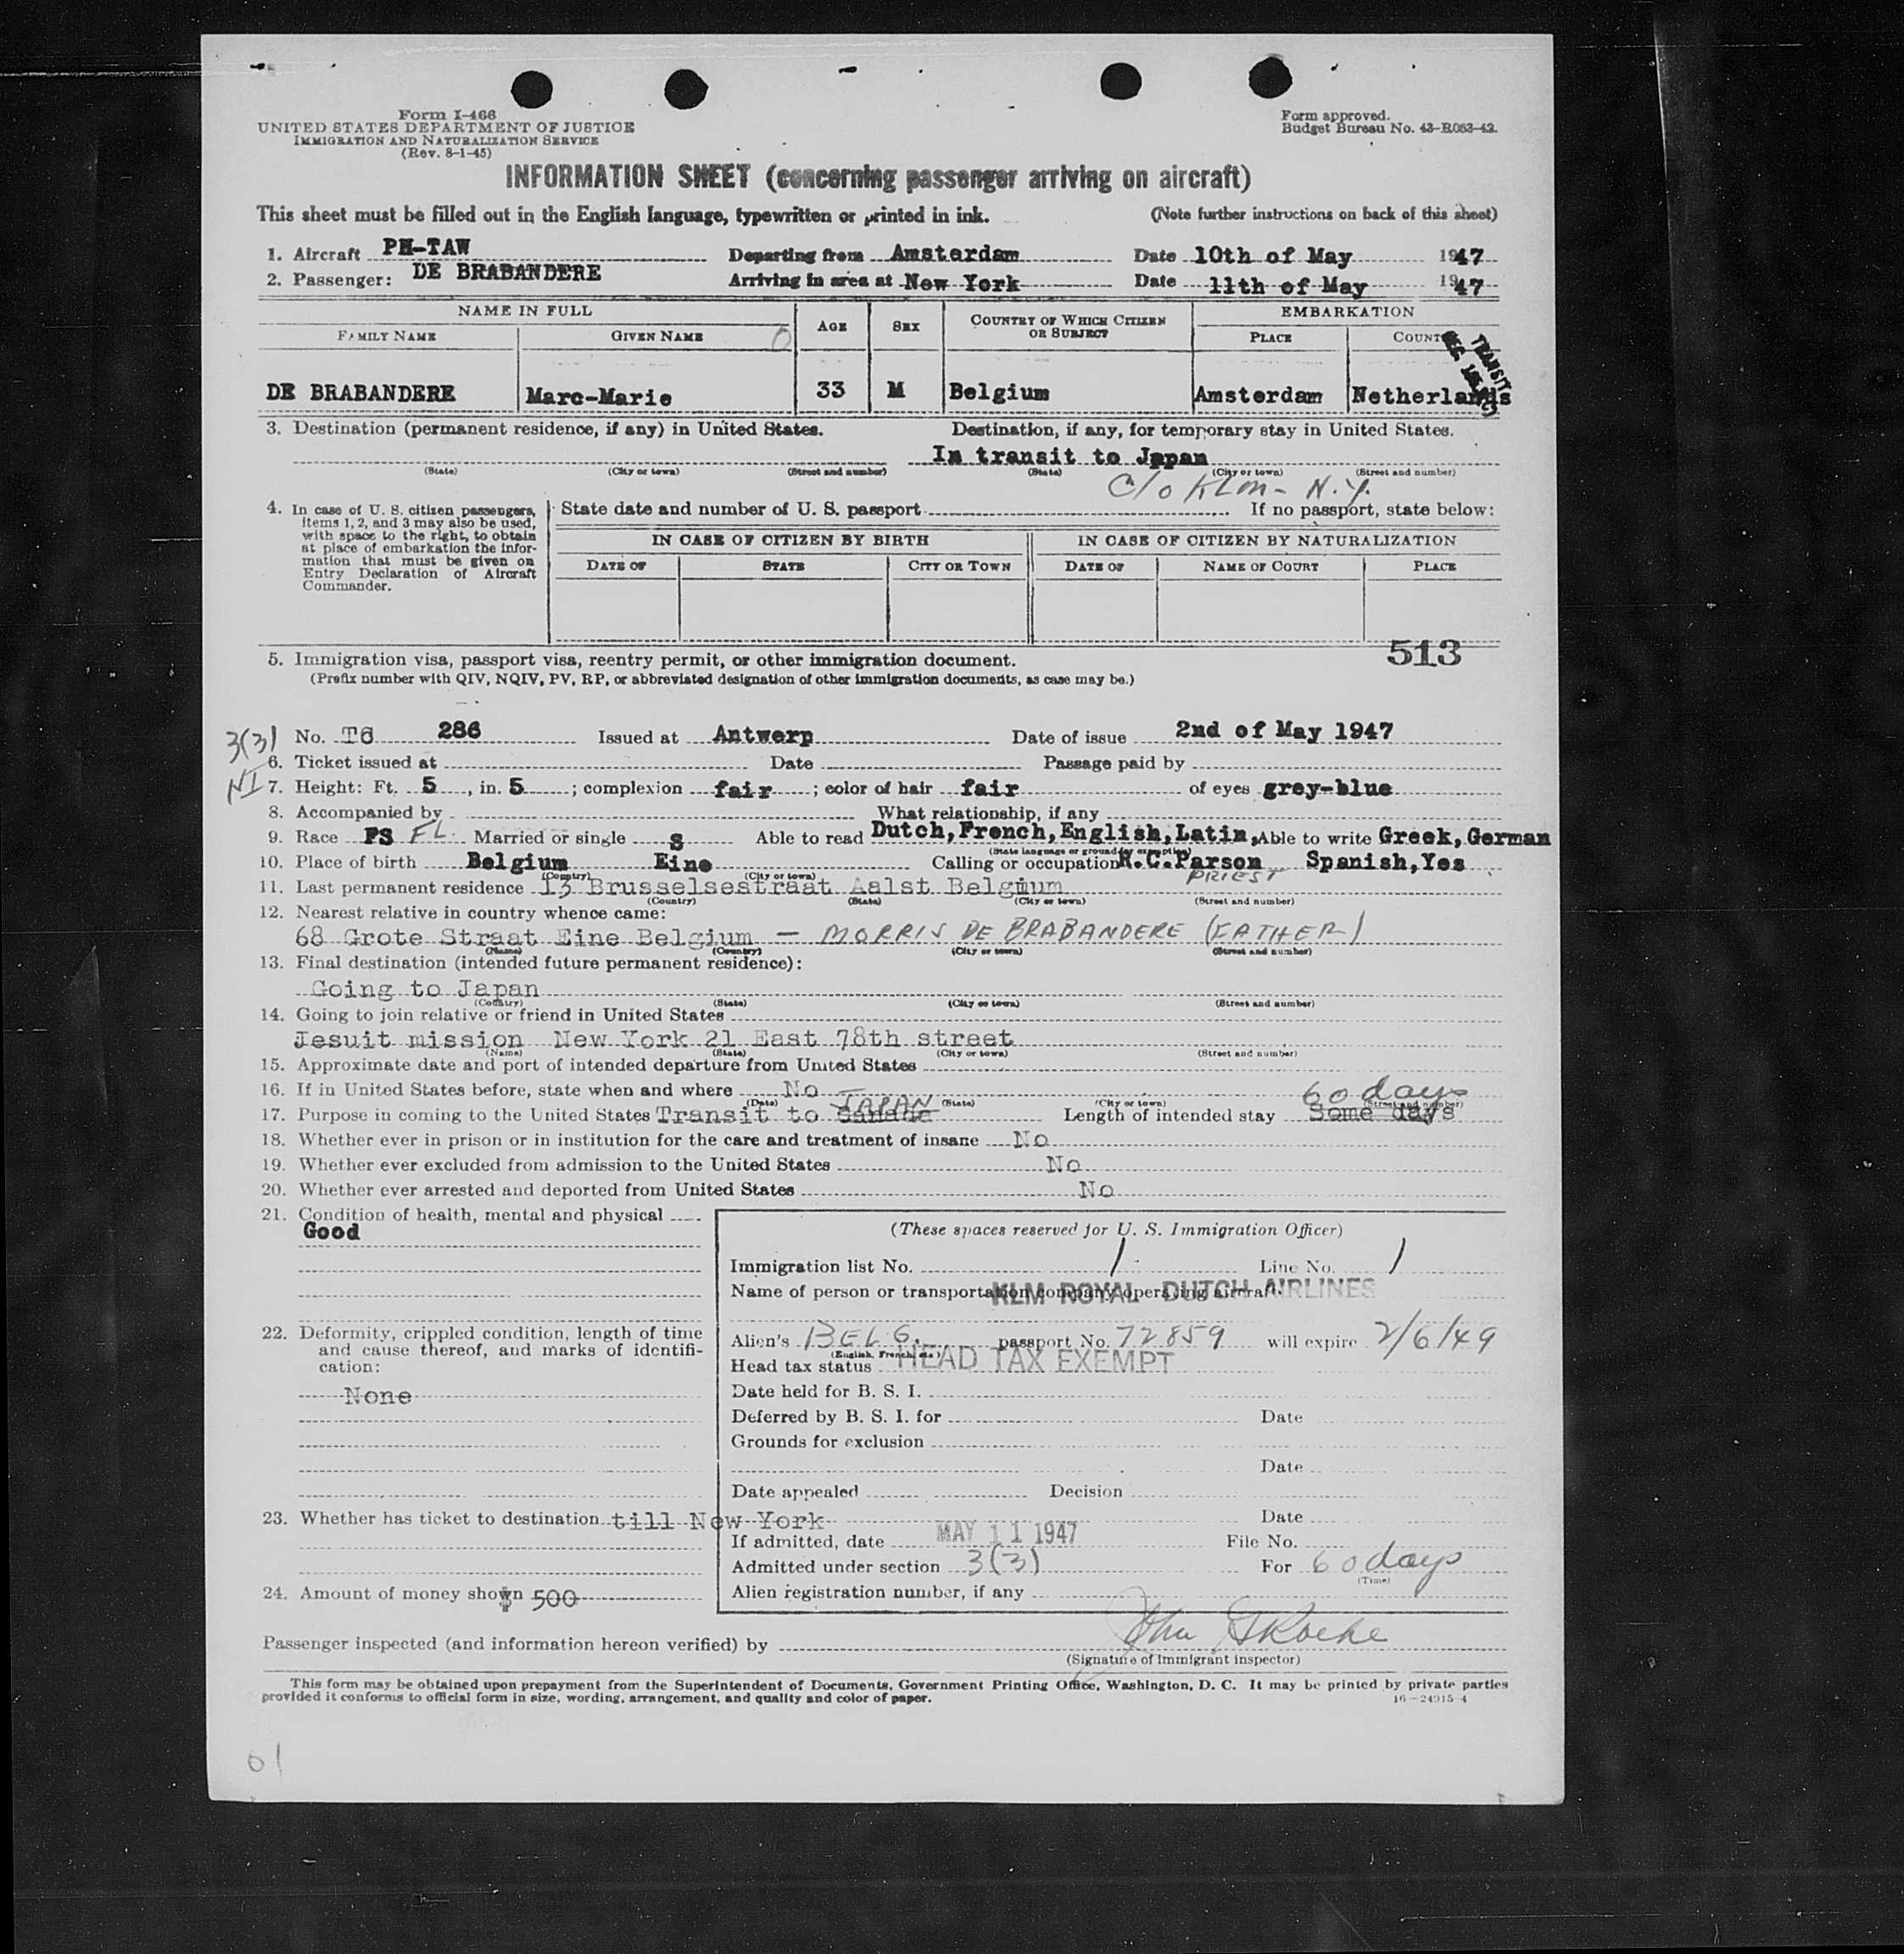 Form I-466
UNITED STATES DEPARTMENT OF JUSTICE
IMMIGRATION AND NATURALIZATION SERVICE
(Rev. 8-1-45)
Form approved.
Budget Bureau No. 43-R053-42.
INFORMATION SHEET (concerning passenger arriving on aircraft)
This sheet must be filled out in the English language, typewritten or printed in ink. (Note further instructions on back of this sheet)
1. Aircraft PH-TAW Departing from Amsterdam Date 10th of May 1947
2. Passenger: DE BRABANDERE Arriving in area at New York Date 11th of May 1947
NAME IN FULL AGE SEX COUNTRY OF WHICH CITIZEN OR SUBJECT EMBARKATION
FAMILY NAME GIVEN NAME PLACE COUNT
TRANSIT
DE BRABANDERE Marc-Marie 33 M Belgium Amsterdam Netherlands
3. Destination (permanent residence, if any) in United States. Destination, if any, for temporary stay in United States.
In transit to Japan
(State) (City or town) (Street and number) (State) (City or town) (Street and number)
c/o KLM - N.Y.
4. In case of U. S. citizen passengers, items 1, 2, and 3 may also be used, with space to the right, to obtain at place of embarkation the information that must be given on Entry Declaration of Aircraft Commander.
State date and number of U. S. passport If no passport, state below:
IN CASE OF CITIZEN BY BIRTH IN CASE OF CITIZEN BY NATURALIZATION
DATE OF STATE CITY OR TOWN DATE OF NAME OF COURT PLACE
513
5. Immigration visa, passport visa, reentry permit, or other immigration document.
(Prefix number with QIV, NQIV, PV, RP, or abbreviated designation of other immigration documents, as case may be.)
3(3) No. T6 286 Issued at Antwerp Date of issue 2nd of May 1947
6. Ticket issued at Date Passage paid by
NI 7. Height: Ft. 5, in. 5; complexion fair; color of hair fair of eyes grey-blue
8. Accompanied by What relationship, if any
9. Race FS FL. Married or single S Able to read Dutch,French,English,Latin, Able to write Greek,German
(State language or ground for exemption)
10. Place of birth Belgium Eine Calling or occupation R.C.Parson Spanish,Yes
(Country) (City or town) PRIEST
11. Last permanent residence 13 Brusselsestraat Aalst Belgium
(Country) (State) (City or town) (Street and number)
12. Nearest relative in country whence came:
68 Grote Straat Eine Belgium - MORRIS DE BRABANDERE (FATHER)
(Name) (Country) (City or town) (Street and number)
13. Final destination (intended future permanent residence):
Going to Japan
(Country) (State) (City or town) (Street and number)
14. Going to join relative or friend in United States
Jesuit mission New York 21 East 78th street
(Name) (State) (City or town) (Street and number)
15. Approximate date and port of intended departure from United States
16. If in United States before, state when and where No 60 days
(Date) JAPAN (State) (City or town) (Street and number)
17. Purpose in coming to the United States Transit to Canada Length of intended stay Some days
18. Whether ever in prison or in institution for the care and treatment of insane No
19. Whether ever excluded from admission to the United States No
20. Whether ever arrested and deported from United States No
21. Condition of health, mental and physical
Good
(These spaces reserved for U. S. Immigration Officer)
Immigration list No. 1 Line No. 1
Name of person or transportation company operating aircraft.
KLM ROYAL DUTCH AIRLINES
22. Deformity, crippled condition, length of time and cause thereof, and marks of identification:
None
Alien's BELG. passport No. 72859 will expire 2/6/49
(English, French, etc.)
Head tax status HEAD TAX EXEMPT
Date held for B. S. I.
Deferred by B. S. I. for Date
Grounds for exclusion
Date
Date appealed Decision
23. Whether has ticket to destination till New York Date
If admitted, date MAY 11 1947 File No.
Admitted under section 3(3) For 60 days
(Time)
24. Amount of money shown $ 500
Alien registration number, if any
Passenger inspected (and information hereon verified) by
(Signature of immigrant inspector)
This form may be obtained upon prepayment from the Superintendent of Documents, Government Printing Office, Washington, D. C. It may be printed by private parties
provided it conforms to official form in size, wording, arrangement, and quality and color of paper. 16-24915-4
01